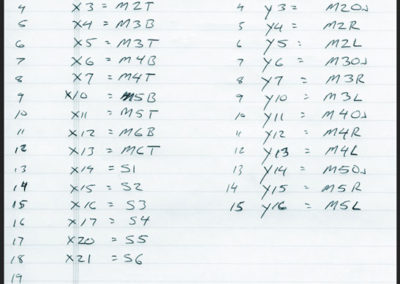 4 X3 = M2T
5 X4 = M3B
6 X5 = M3T
7 X6 = M4B
8 X7 = M4T
9 X10 = M5B
10 X11 = M5T
11 X12 = M6B
12 X13 = M6T
13 X14 = S1
14 X15 = S2
15 X16 = S3
16 X17 = S4
17 X20 = S5
18 X21 = S6
19
4 Y3 = M2ON
5 Y4 = M2R
6 Y5 = M2L
7 Y6 = M3ON
8 Y7 = M3R
9 Y10 = M3L
10 Y11 = M4ON
11 Y12 = M4R
12 Y13 = M4L
13 Y14 = M5ON
14 Y15 = M5R
15 Y16 = M5L